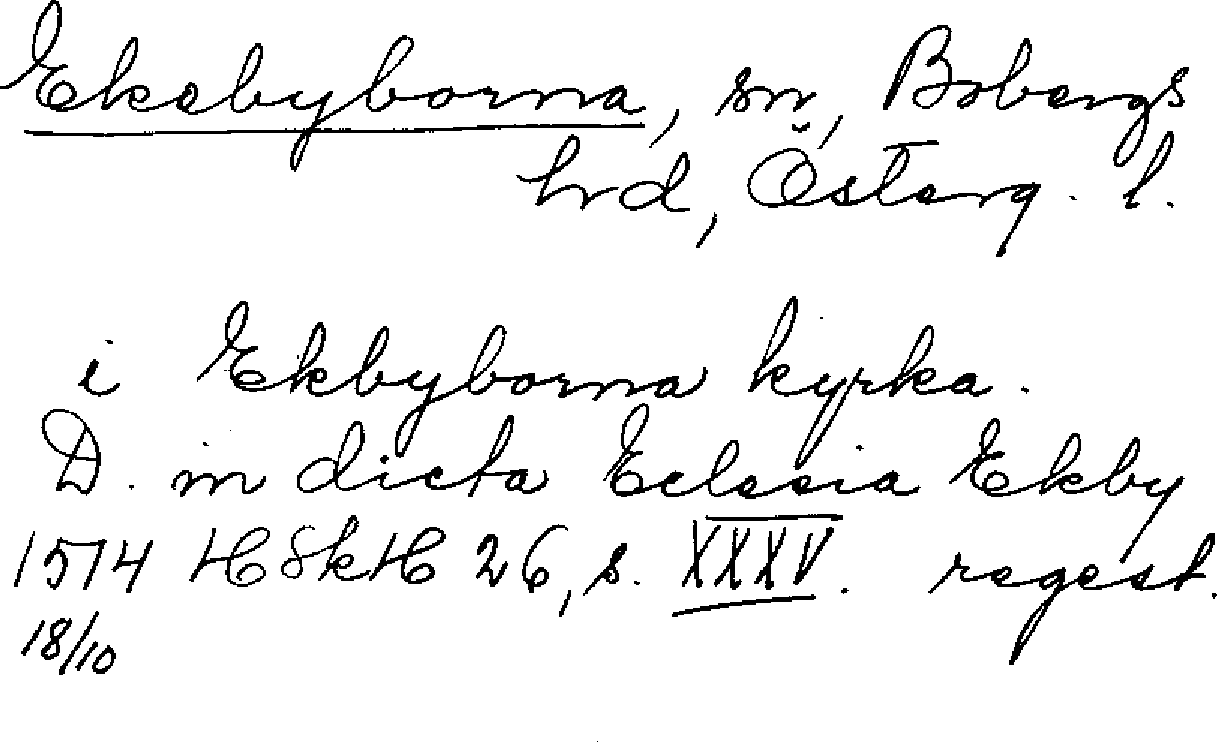 Ekebyborna, sn, Bobergs
hrd, Österg. l.
i Ekbyborna kyrka.
D. in dicta Eclesia Ekby
1514 HSkH 26, s. XXXV. regest.
18/10